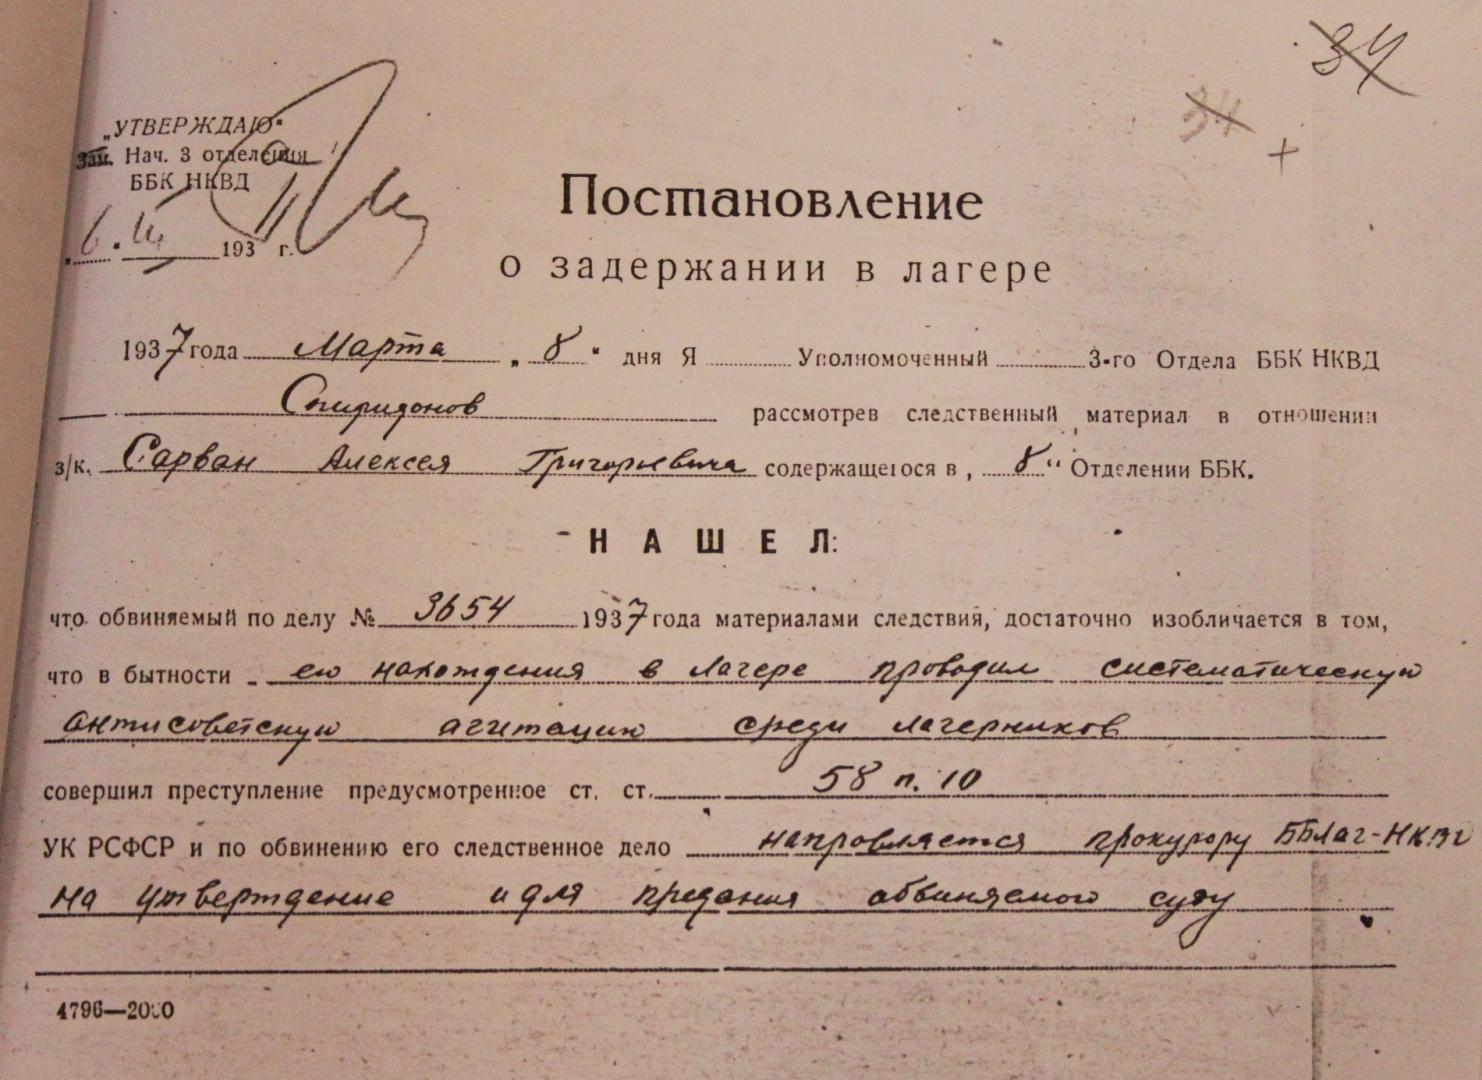 34
34
+
„УТВЕРЖДАЮ“
Зам. Нач. 3 отделения
ББК НКВД
193 г.
Постановление
о задержании в лагере
1937 года Марта „ 8 “ дня Я Уполномоченный 3-го Отдела ББК НКВД
Спиридонов рассмотрев следственный материал в отношении
з/к. Сарван Алексея Григорьевича содержащегося в „ 8 “ Отделении ББК.
НАШЕЛ:
что обвиняемый по делу № 3654 1937 года материалами следствия, достаточно изобличается в том,
что в бытности его нахождения в лагере проводил систематическую
антисоветскую агитацию среди лагерников
совершил преступление предусмотренное ст. ст. 58 п. 10
УК РСФСР и по обвинению его следственное дело направляется прокурору ББлаг-НКВД
на утверждение и для предания обвиняемого суду
4796—2000